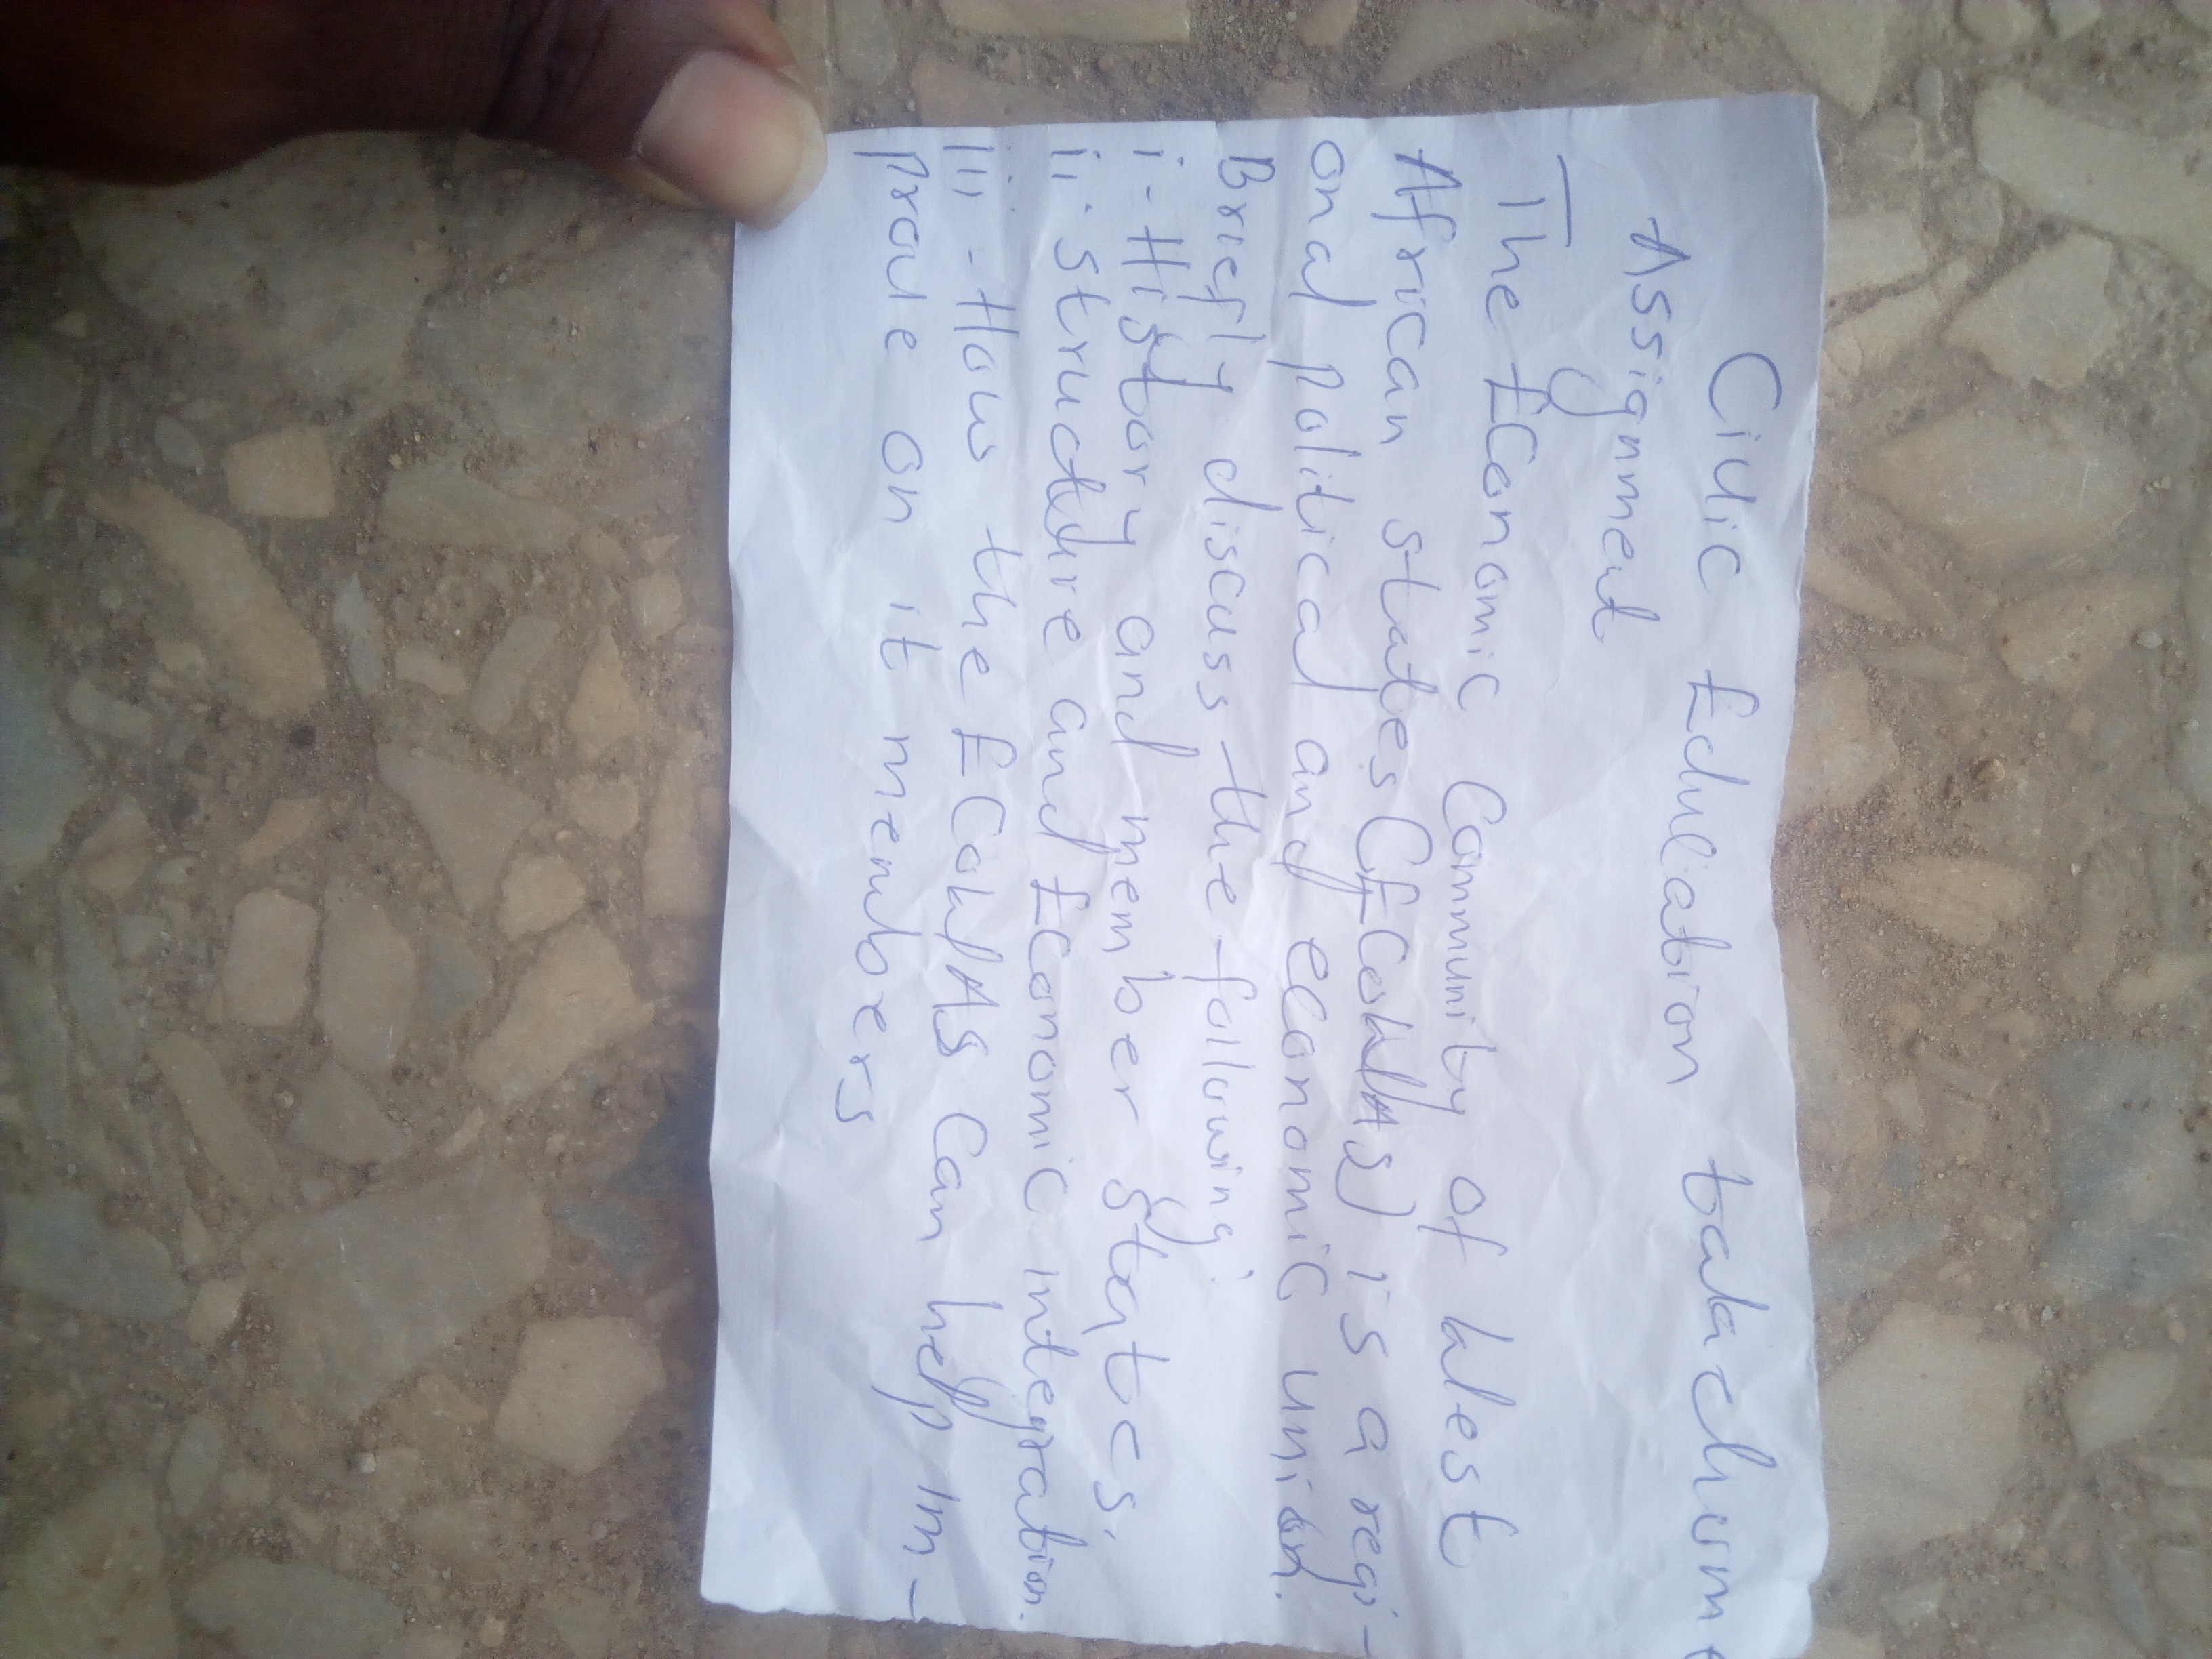 Civic Education
Assignment
The Economic Community of West
African states (ECOWAS) is a regi-
onal political and economic union.
Briefly discuss the following;
i - History and member states.
ii. structure and Economic integration.
iii - How the ECOWAS Can help im-
prove on it members